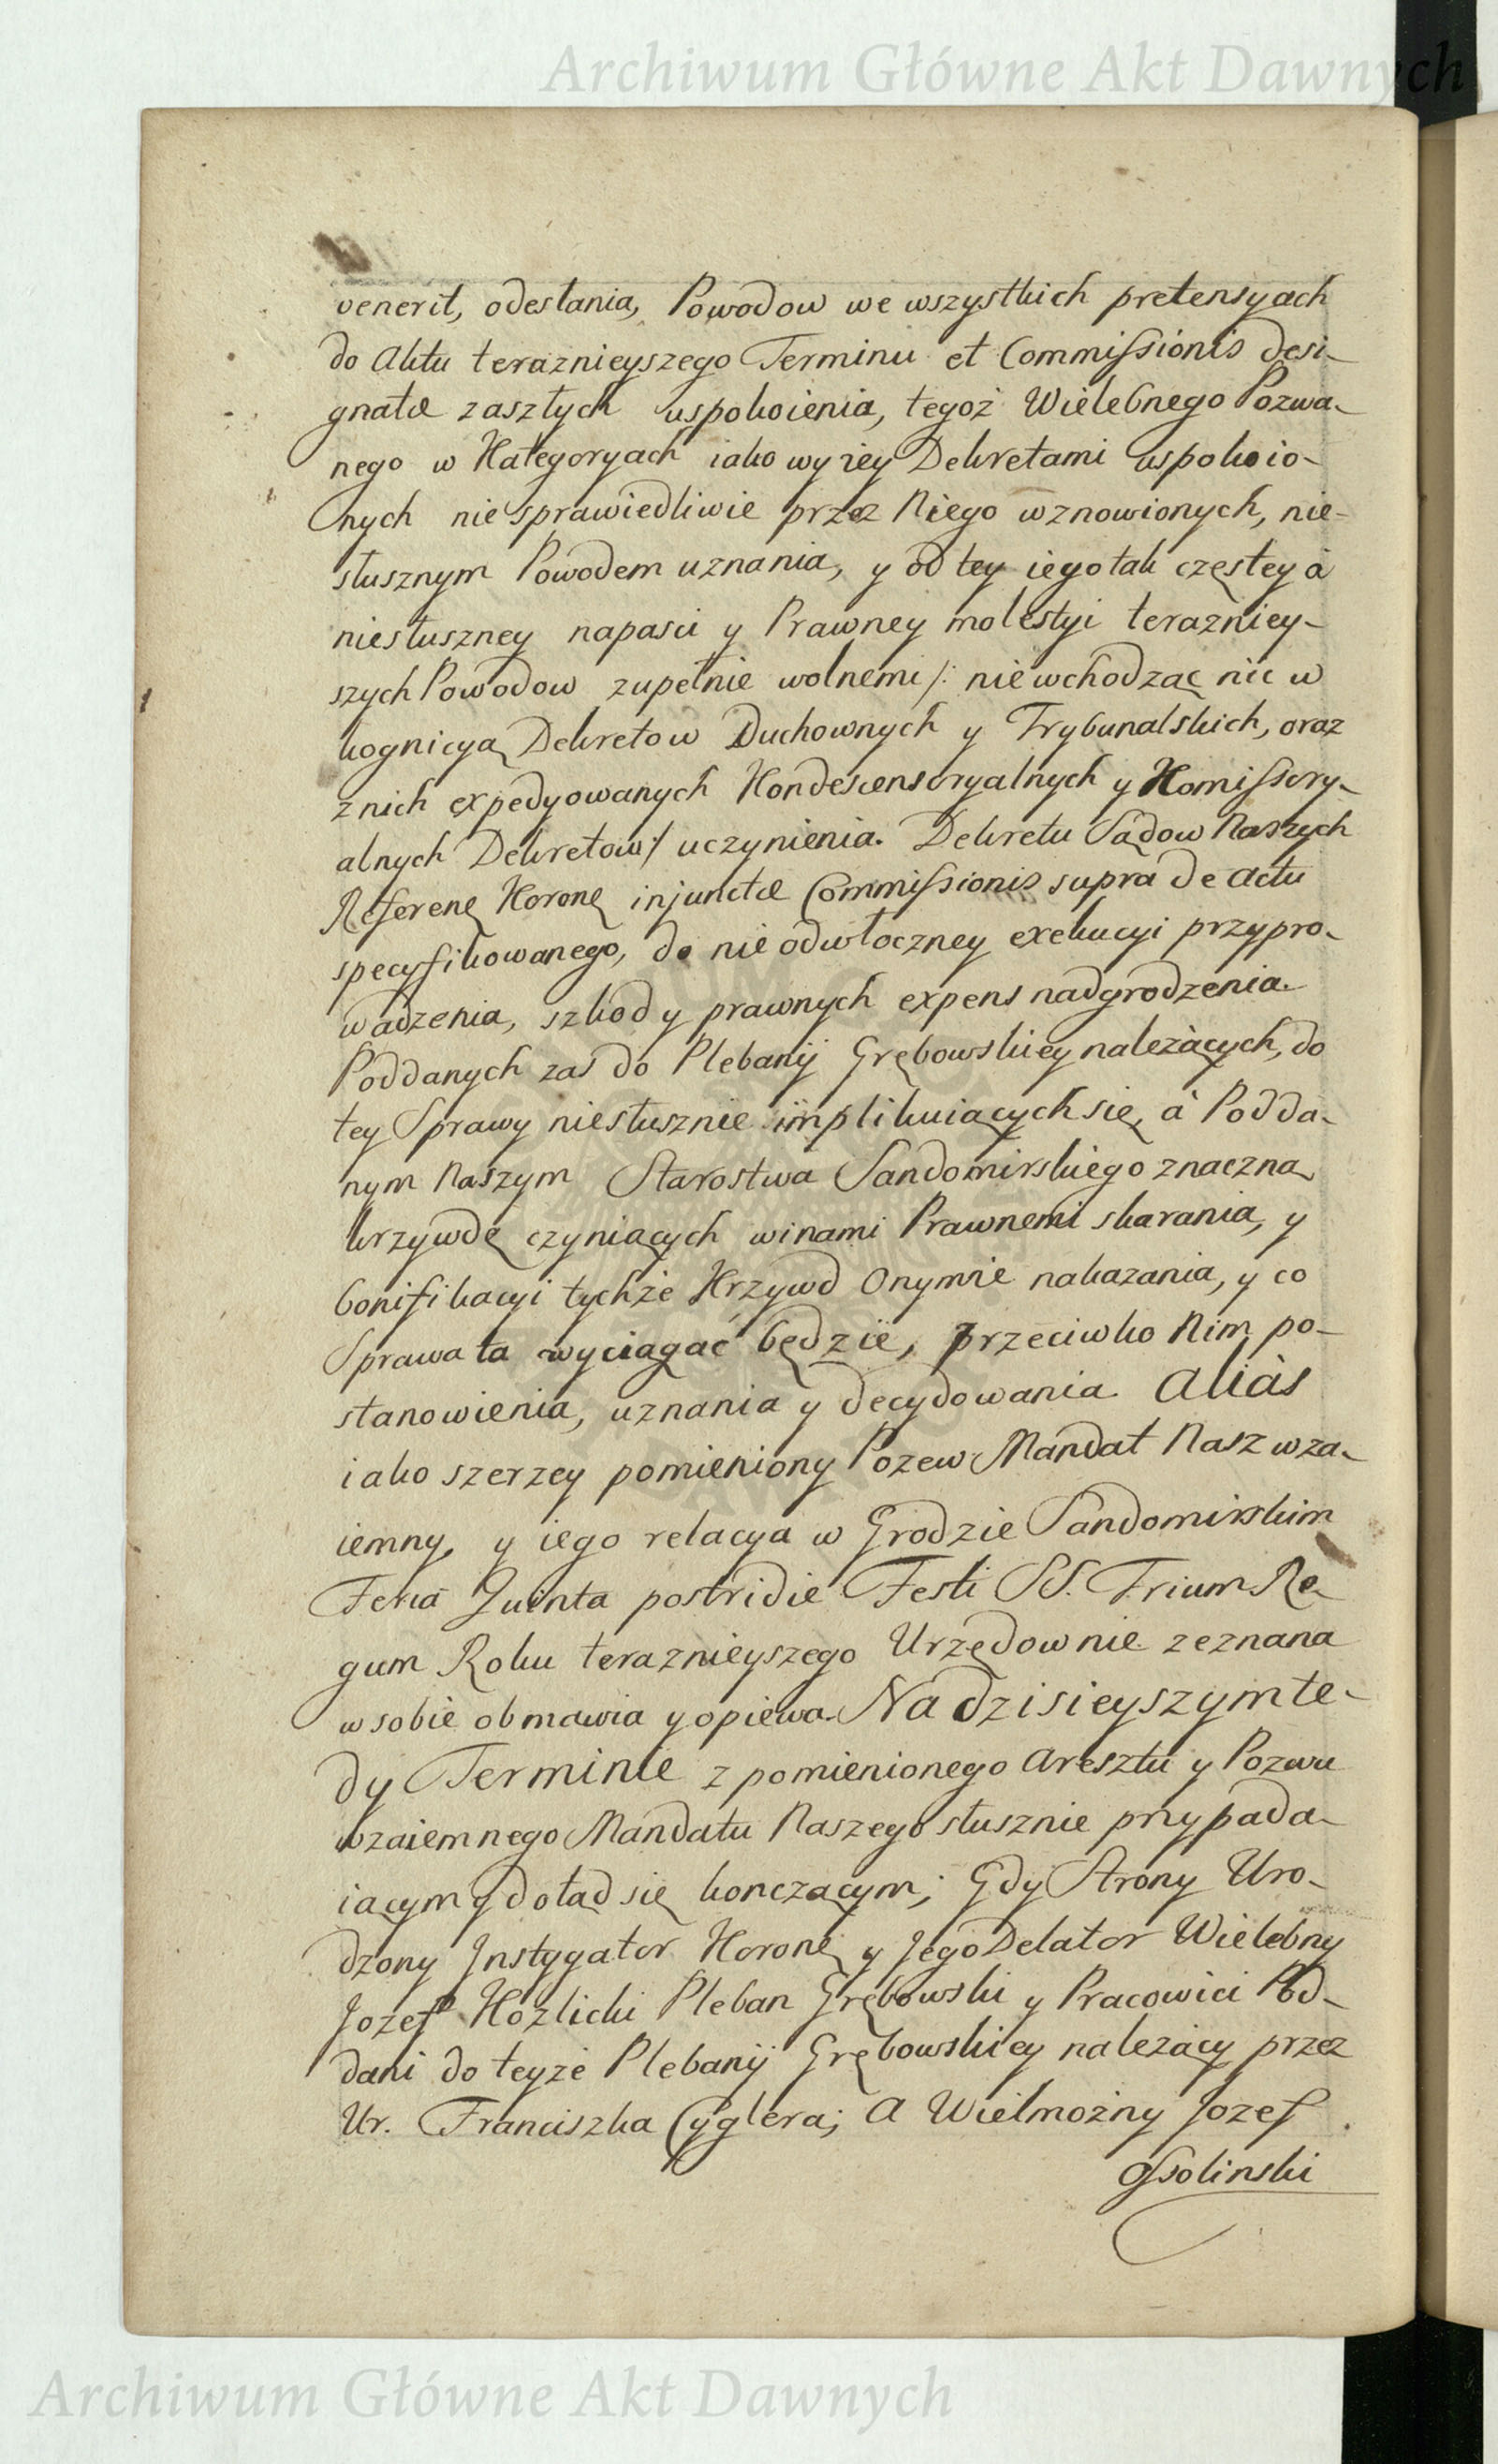 Archiwum Główne Akt Dawnych
venerit, odesłania, Powodow we wszystkich pretensyach
do Aktu teraznieyszego Terminu et Commissionis desi-
gnatæ zaszłych uspokoienia, tegoż Wielebnego Pozwa-
nego w Kategoryach iako wyżey Dekretami uspokoio-
nych niesprawiedliwie przez Niego wznowionych, nie-
słusznym Powodem uznania, y od tey iego tak częstey à
niesłuszney napasci y Prawney molestyi terazniey-
szych Powodow zupełnie wolnemi /: niewchodząc nic w
kognicyą Dekretow Duchownych y Trybunalskich, oraz
z nich expedyowanych Kondescensoryalnych y Komissory-
alnych Dekretow :/ uczynienia. Dekretu Sądow Naszych
Referenę Koronę injunctæ Commissionis supra de actu
specyfikowanego, do nieodwłoczney exekucyi przypro-
wadzenia, szkod y prawnych expens nadgrodzenia.
Poddanych zas do Plebanij Grębowskiey należących, do
tey Sprawy niesłusznie implikuiących się, à Podda-
nym Naszym Starostwa Sandomirskiego znaczną
krzywdę czyniących winami Prawnemi skarania, y
bonifikacyi tychże Krzywd Onymże nakazania, y co
Sprawa ta wyciągać będzie, przeciwko Nim po-
stanowienia, uznania y decydowania. Aliàs
iako szerzey pomieniony Pozew Mandat Nasz wza-
iemny, y iego relacya w Grodzie Sandomirskim
Feria Quinta postridie Festi SS. Trium Re-
gum Roku teraznieyszego Urzędownie zeznana
w sobie obmawia y opiewa. Na dzisieyszym te-
dy Terminie z pomienionego Aresztu y Pozwu
wzaiemnego Mandatu Naszego słusznie przypada-
iącym y dotąd się konczącym; Gdy Strony Uro-
dzony Instygator Koronę y Jego Delator Wielebny
Jozef Kozlicki Pleban Grębowski y Pracowici Pod-
dani do teyże Plebanij Grębowskiey należący przez
Ur. Franciszka Cyglera; A Wielmożny Jozef
Ossolinski
Archiwum Główne Akt Dawnych